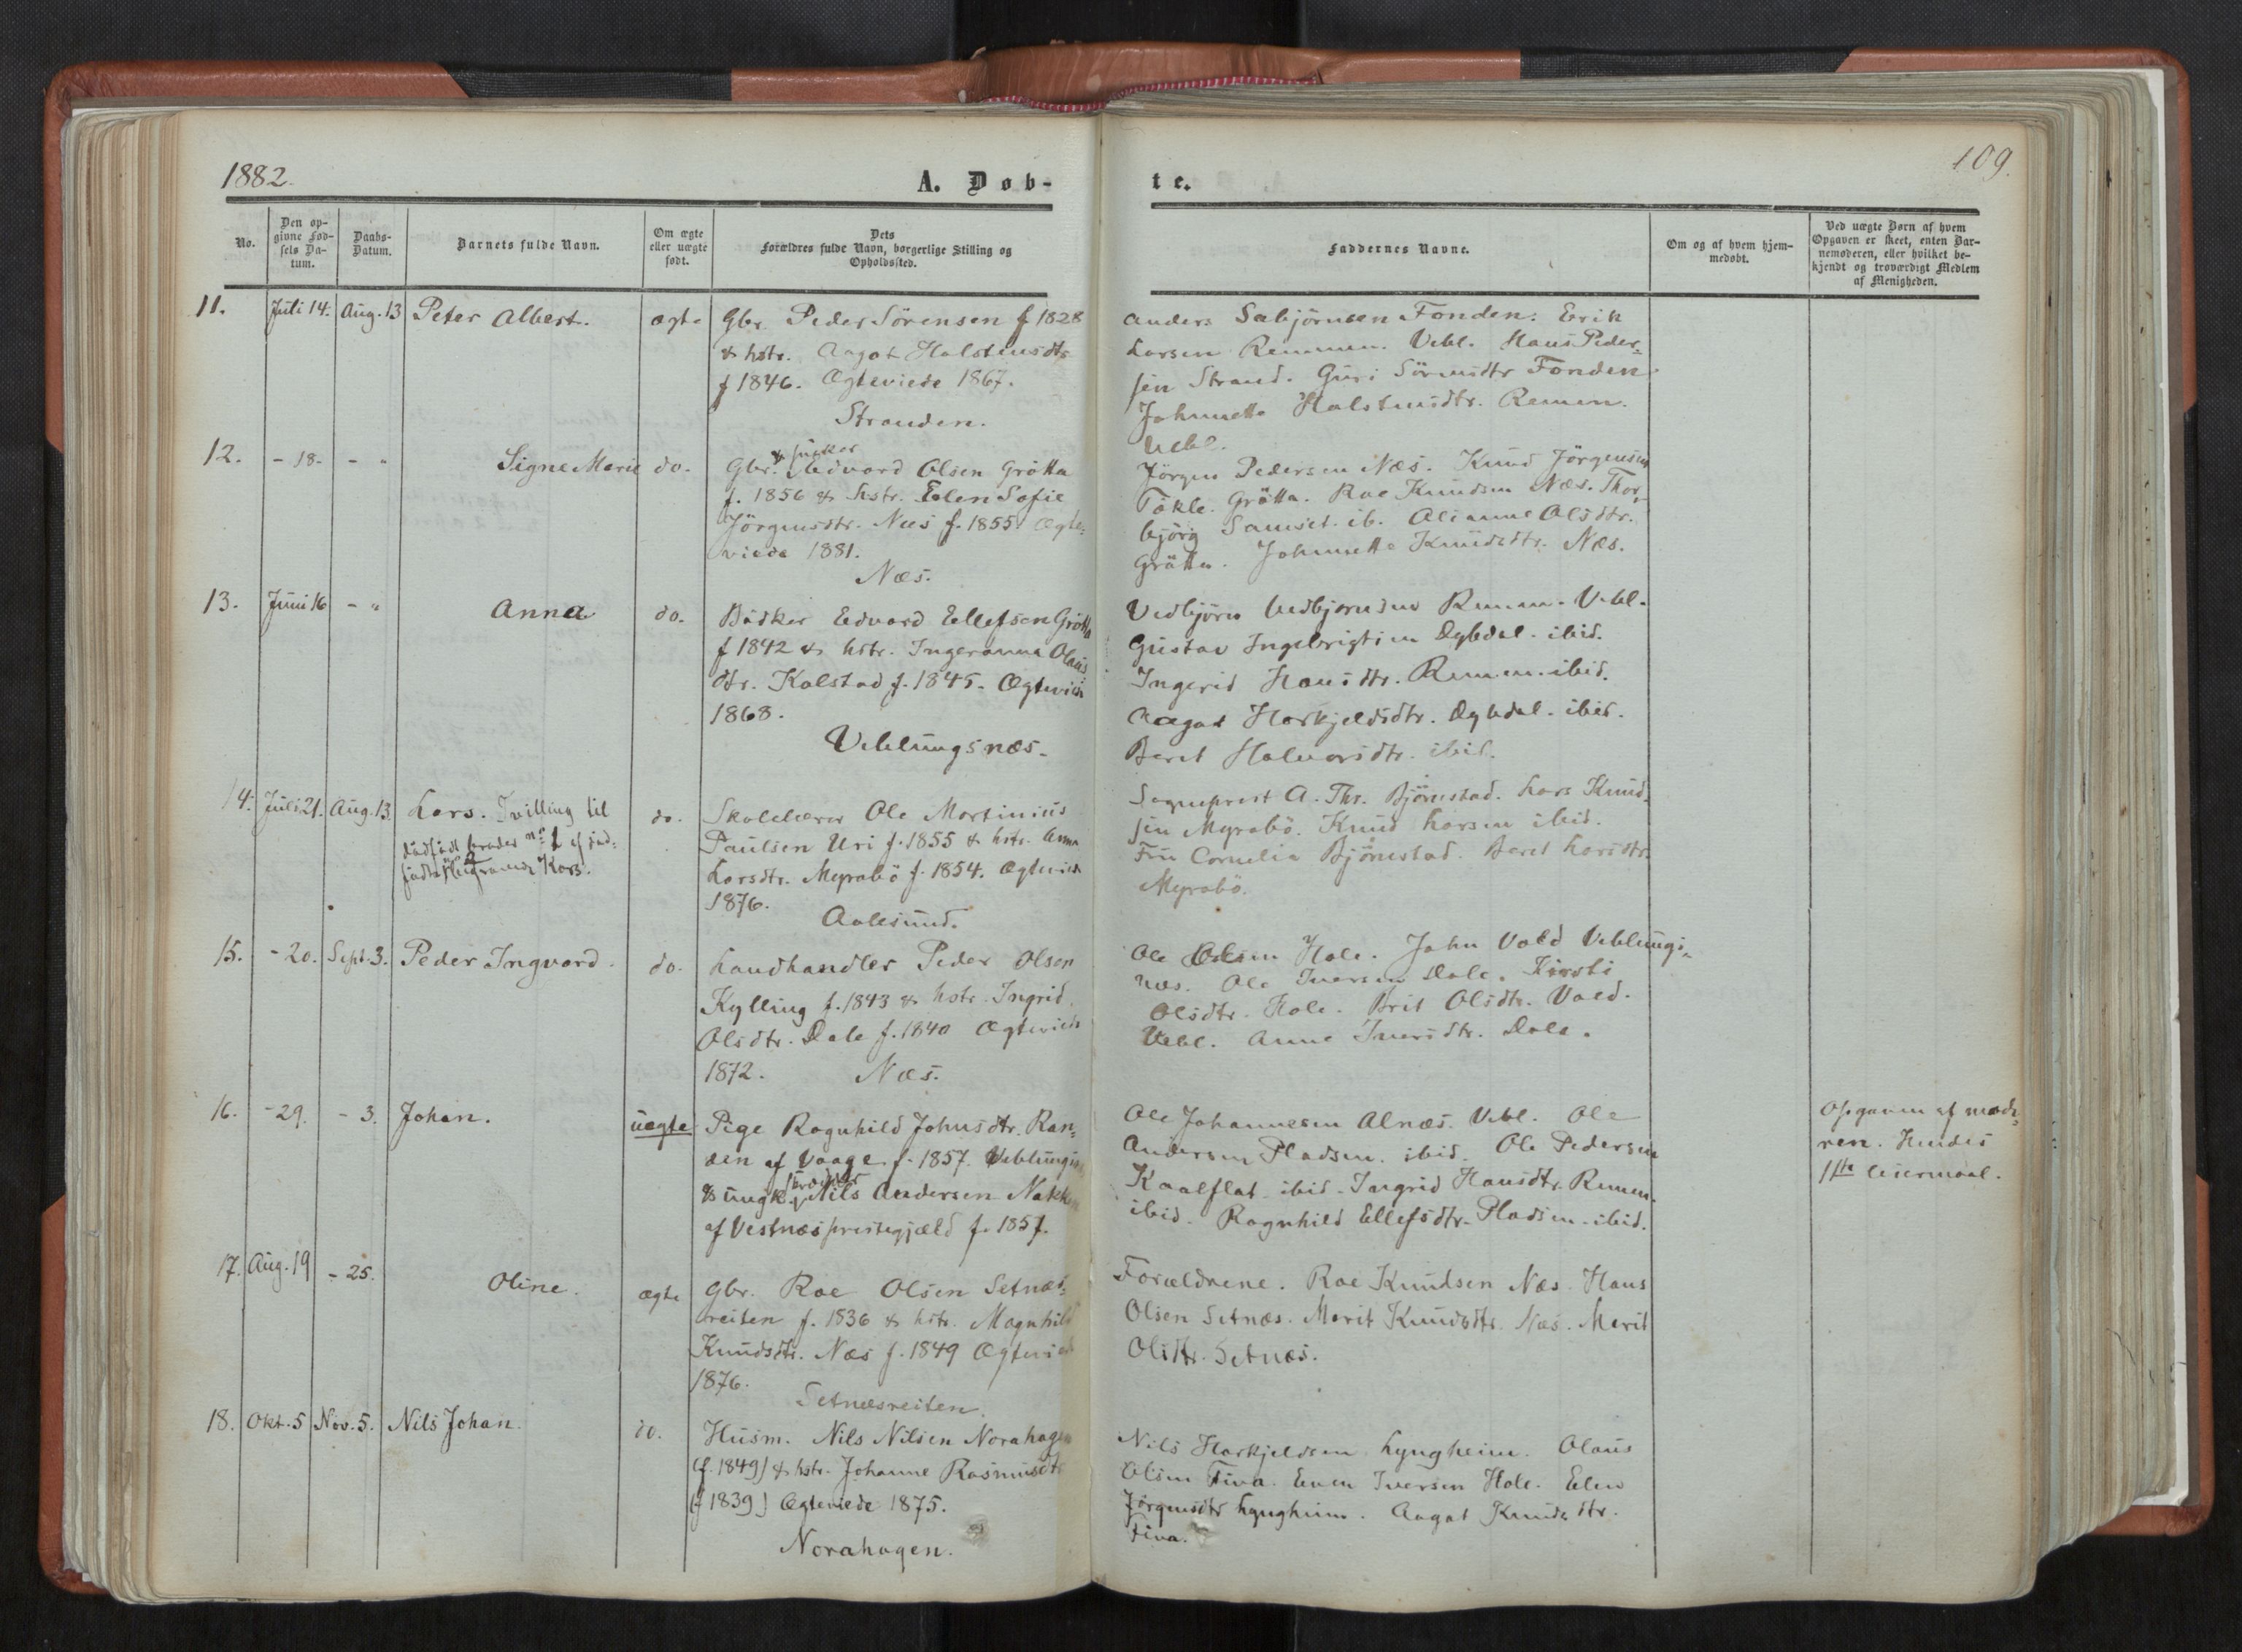 1882.
A. Døb-
te.
109.
No.
Den op-
givne Fød-
sels Da-
tum.
Daabs-
Datum.
Barnets fulde Navn.
Om ægte
eller uægte
født.
Dets
Forældres fulde Navn, borgerlige Stilling og
Opholdssted.
Faddernes Navne.
Om og af hvem hjem-
medøbt.
Ved uægte Børn af hvem
Opgaven er skeet, enten Bar-
nemoderen, eller hvilket be-
kjendt og troværdigt Medlem
af Menigheden.
11. Juli 14. Aug. 13 Peter Albert. ægte Gbr. Peder Sörensen f 1828
& hstr. Aagot Halstensdtr
f 1846. Ægteviede 1867.
Stranden.
Anders Sæbjörnsen Fonden. Erik
Larsen Remmen. Vebl. Hans Peder-
sen Strand. Guri Sörensdtr Fonden
Johnnette Halstensdtr. Remen.
Vebl.
12. - 18. - " Signe Marie do. Gbr. & snekker Edvard Olsen Grötta
f. 1856 & hstr. Elen Sofie
Jörgensdtr. Næs f. 1855. Ægte-
viede 1881.
Næs.
Jörgen Pedersen Næs. Knud Jörgensen
Tokle. Grötta. Roe Knudsen Næs. Thor-
björg Samset. ib. Olianne Olsdtr.
Grötta. Johnnette Knudsdtr. Næs.
13. Juni 16 - " Anna do. Bödker Edvard Ellefsen Grötta
f 1842 & hstr. Ingeranna Olaus
dtr. Kalstad f. 1845. Ægtevied
1868.
Veblungsnæs.
Vedbjörn Vedbjörnsen Remm. Vebl.
Gustav Ingebrigtsen Dybdal. ibid.
Ingerid Hansdtr. Remmen. ibid.
Aagot Horkjeldsdtr. Dybdal. ibid.
Beret Halvorsdtr. ibid.
14. Juli 21. Aug. 13. Lars. Tvilling til
dödfödt broder no 1 af död-
födte
do. Skolelærer Ole Martinius
Paulsen Uri f. 1855 & hstr. Anna
Larsdtr. Myrabö f. 1854. Ægtevied
1876.
Aalesund.
Sogneprest A. Thr. Björnstad. Lars Knud-
sen Myrabö. Knud Larsen ibid.
Fru Cornelia Björnstad. Beret Larsdtr.
Myrabö.
15. - 20. Sept. 3. Peder Ingvard. do. Landhandler Peder Olsen
Kylling f. 1843 & hstr. Ingrid
Olsdtr. Dale f. 1840 Ægtevied
1872. Næs.
Ole Olsen Hole. John Vold Veblungs-
næs. Ole Iversen Dale. Kirsti
Olsdtr. Hole. Brit Olsdtr. Vold.
Vebl. Anne Iversdtr. Dale.
16. - 29. - 3. Johan. uægte Pige Ragnhild Johnsdtr. Ran-
den af Vaage f. 1857. Veblungsn.
& ungk. Nils Andersen Nakken
af Vestnæs prestegjæld f. 1857.
Ole Johannesen Alnæs. Vebl. Ole
Andersen Pladsen. ibid. Ole Pedersen
Kaalflat ibid. Ingrid Hansdtr. Remm.
ibid. Ragnhild Ellefsdtr. Pladsen. ibid.
Opgaven af mode-
ren. Hendes
1ste leiermaal.
17. Aug. 19 - 25. Oline. ægte Gbr. Roe Olsen Setnæs-
reiten f. 1836 & hstr. Magnhild
Knudsdtr. Næs f. 1849 Ægteviede
1876.
Setnæsreiten.
Forældrene. Roe Knudsen Næs. Hans
Olsen Setnæs. Marit Knudsdtr. Næs. Marit
Olsdtr. Setnæs.
18. Okt. 5 Nov. 5. Nils Johan. do. Husm. Nils Nilsen Norahagen
(f. 1849) & hstr. Johanne Rasmusdtr
(f 1839) Ægteviede 1875.
Norahagen.
Nils Horkjeldsen Lyngheim. Olaus
Olsen Fiva. Even Iversen Hole. Elen
Jörgensdtr Lyngheim. Aagot Knudsdtr.
Fiva.